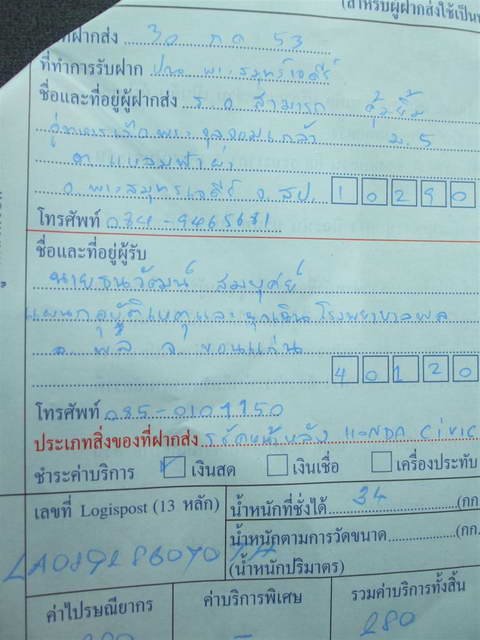 (สำหรับผู้ฝากส่งใช้เป็น
ที่ฝากส่ง 30 กค 53
ที่ทำการรับฝาก ปณ. พระสมุทรเจดีย์
ชื่อและที่อยู่ผู้ฝากส่ง ร.อ สามารถ
อู่ทหารเรือพระจุลจอมเกล้า ม.5
ต. แหลมฟ้าผ่า
อ พระสมุทรเจดีย์ จ. สป. 10290
โทรศัพท์ 084-9465681
ชื่อและที่อยู่ผู้รับ
นายธนวัฒน์
แผนกอุบัติเหตุและฉุกเฉิน โรงพยาบาลพล
อ. พล จ. ขอนแก่น
40120
โทรศัพท์ 085-0101150
ประเภทสิ่งของที่ฝากส่ง หลัง HONDA CIVIC
ชำระค่าบริการ เงินสด เงินเชื่อ เครื่องประทับ
เลขที่ Logispost (13 หลัก) น้ำหนักที่ชั่งได้ 34 (กก.
น้ำหนักตามการวัดขนาด (กก.
(น้ำหนักปริมาตร)
ค่าไปรษณียากร ค่าบริการพิเศษ รวมค่าบริการทั้งสิ้น
280